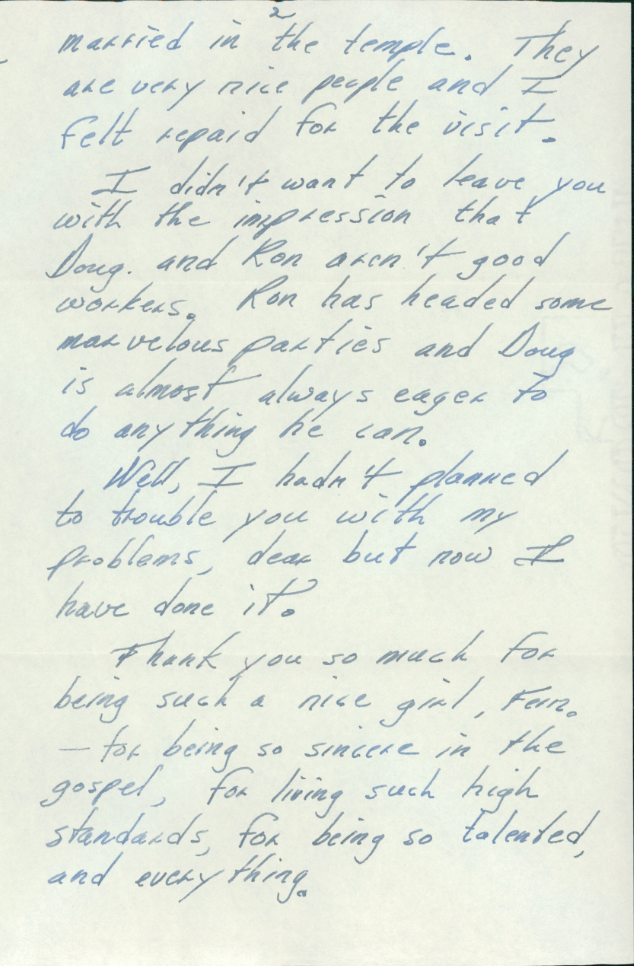 2
married in the temple. They
are very nice people and I
felt repaid for the visit.
I didn't want to leave you
with the impression that
Doug. and Ron aren't good
workers. Ron has headed some
marvelous parties and Doug
is almost always eager to
do anything he can.
Well, I hadn't planned
to trouble you with my
problems, dear but now I
have done it.
Thank you so much for
being such a nice girl, Fern.
— for being so sincere in the
gospel, for living such high
standards, for being so talented,
and everything.